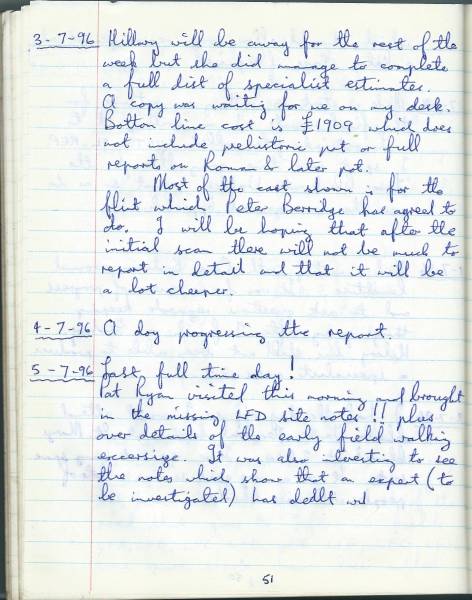 3-7-96 Hillary will be away for the rest of the
week but she did manage to complete
a full list of specialist estimates.
A copy was waiting for me on my desk.
Botton line cost is £1909 which does
not include prehistoric pot or full
reports on Roman & later pot.
Most of the cost shown is for the
flint which Peter Berridge has agreed to
do. I will be hoping that after the
initial scan there will not be much to
report in detail and that it will be
a lot cheeper.
4-7-96 A day progressing the report.
5-7-96 Last full time day!
Pat Ryan visited this morning and brought
in the missing LFD site notes!! plus
over details of the early field walking
excersise. It was also intersting to see
the notes which show that an expert (to
be investigated) has dealt wd
51